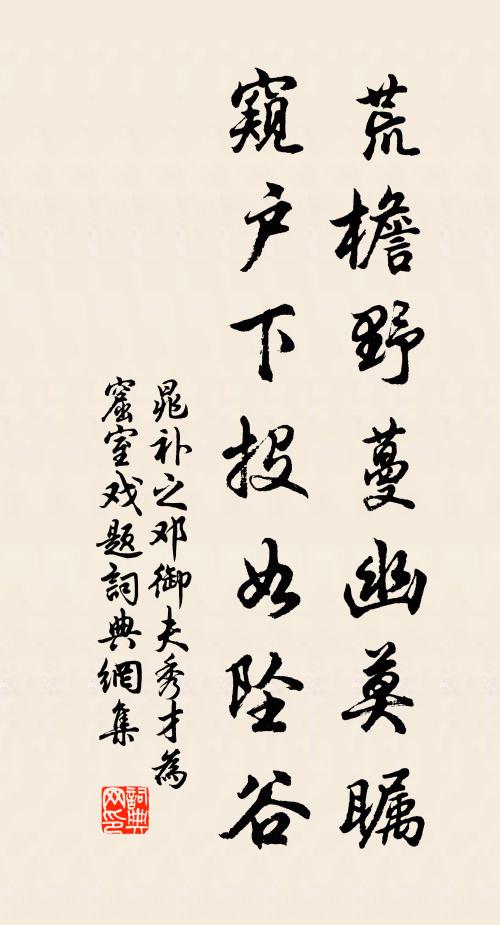 荒檐野蔓幽莫瞩
窥户下投如坠谷
晁补之邓御夫秀才為
窟室戏题詞典網集
詞典
网印